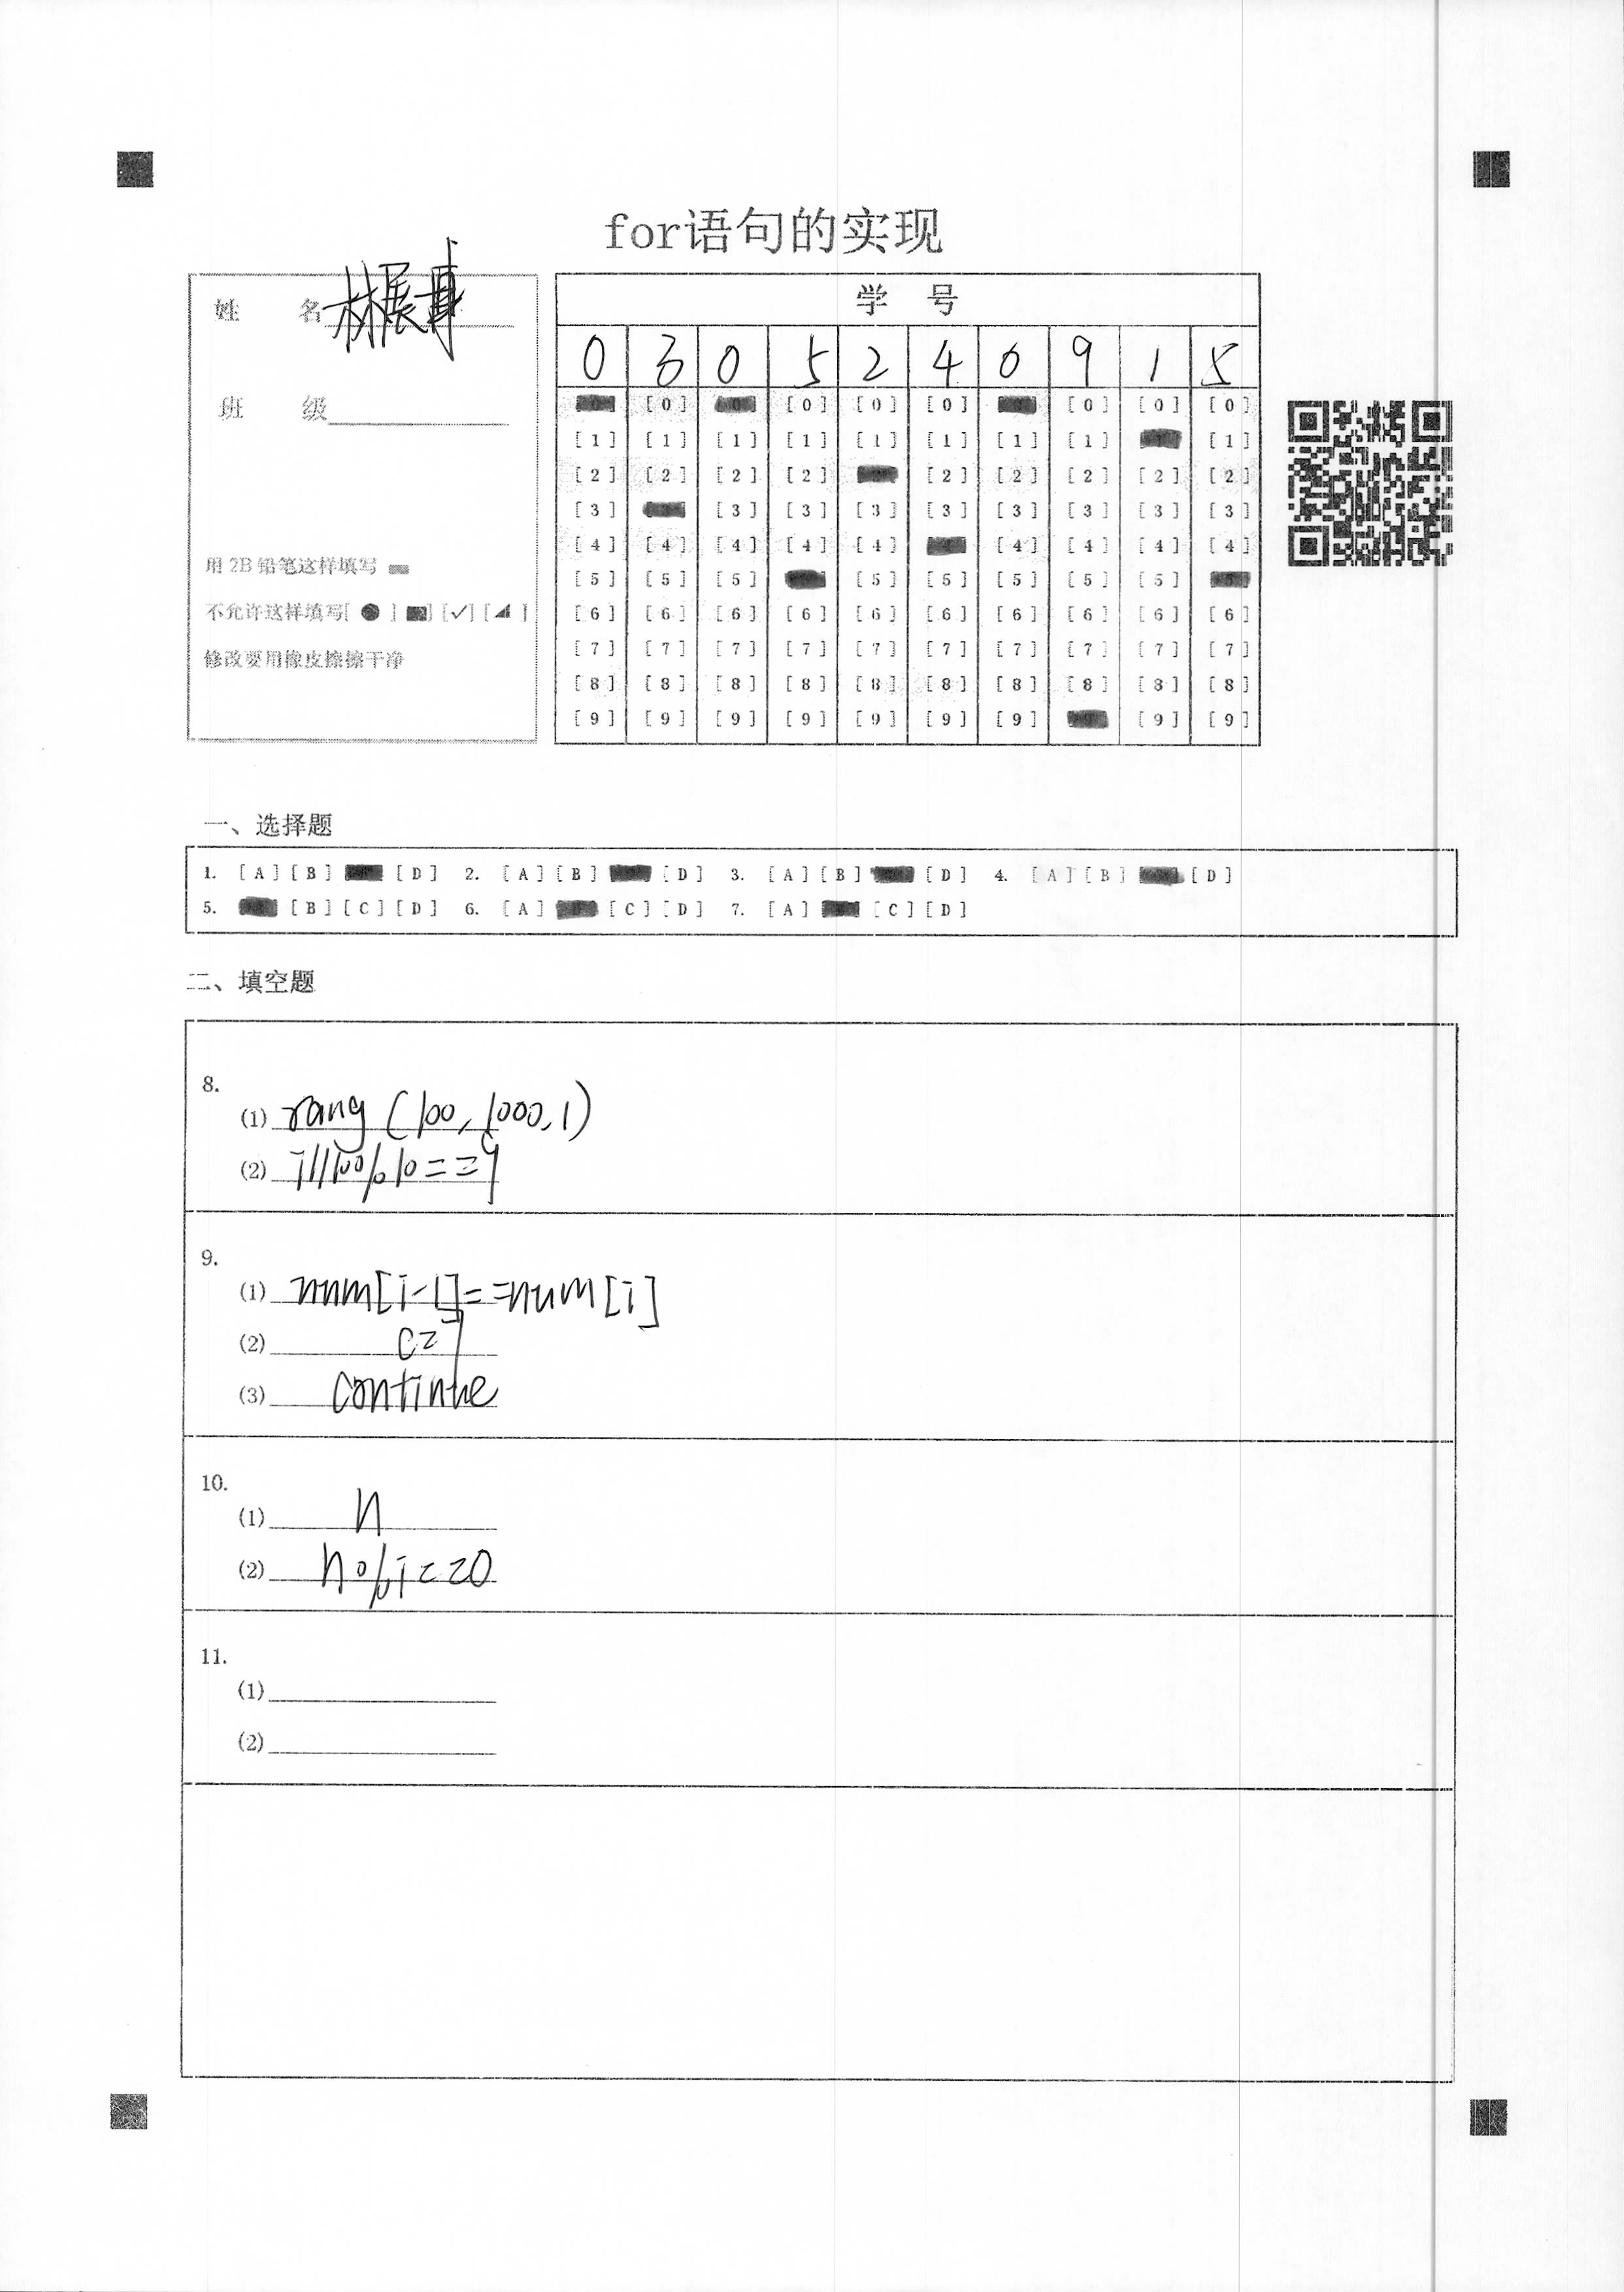 for语句的实现
姓 名 林展
班 级
用 2B 铅笔这样填写
不允许这样填写[ ● ] [■] [✓] [◢ ]
修改要用橡皮擦擦干净
学 号
0 3 0 5 2 4 0 9 1 5
[0] [0] [0] [0] [0] [0] [0]
[1] [1] [1] [1] [1] [1] [1] [1] [1]
[2] [2] [2] [2] [2] [2] [2] [2] [2]
[3] [3] [3] [3] [3] [3] [3] [3] [3]
[4] [4] [4] [4] [4] [4] [4] [4] [4]
[5] [5] [5] [5] [5] [5] [5] [5]
[6] [6] [6] [6] [6] [6] [6] [6] [6] [6]
[7] [7] [7] [7] [7] [7] [7] [7] [7] [7]
[8] [8] [8] [8] [8] [8] [8] [8] [8] [8]
[9] [9] [9] [9] [9] [9] [9] [9] [9]
一、选择题
1. [A] [B] [D] 2. [A] [B] [D] 3. [A] [B] [D] 4. [A] [B] [D]
5. [B] [C] [D] 6. [A] [C] [D] 7. [A] [C] [D]
二、填空题
8.
(1) rang (100, 1000, 1)
(2) i//100%10==9
9.
(1) num[i-1]==num[i]
(2) c=1
(3) continue
10.
(1) n
(2) n%i==0
11.
(1)
(2)